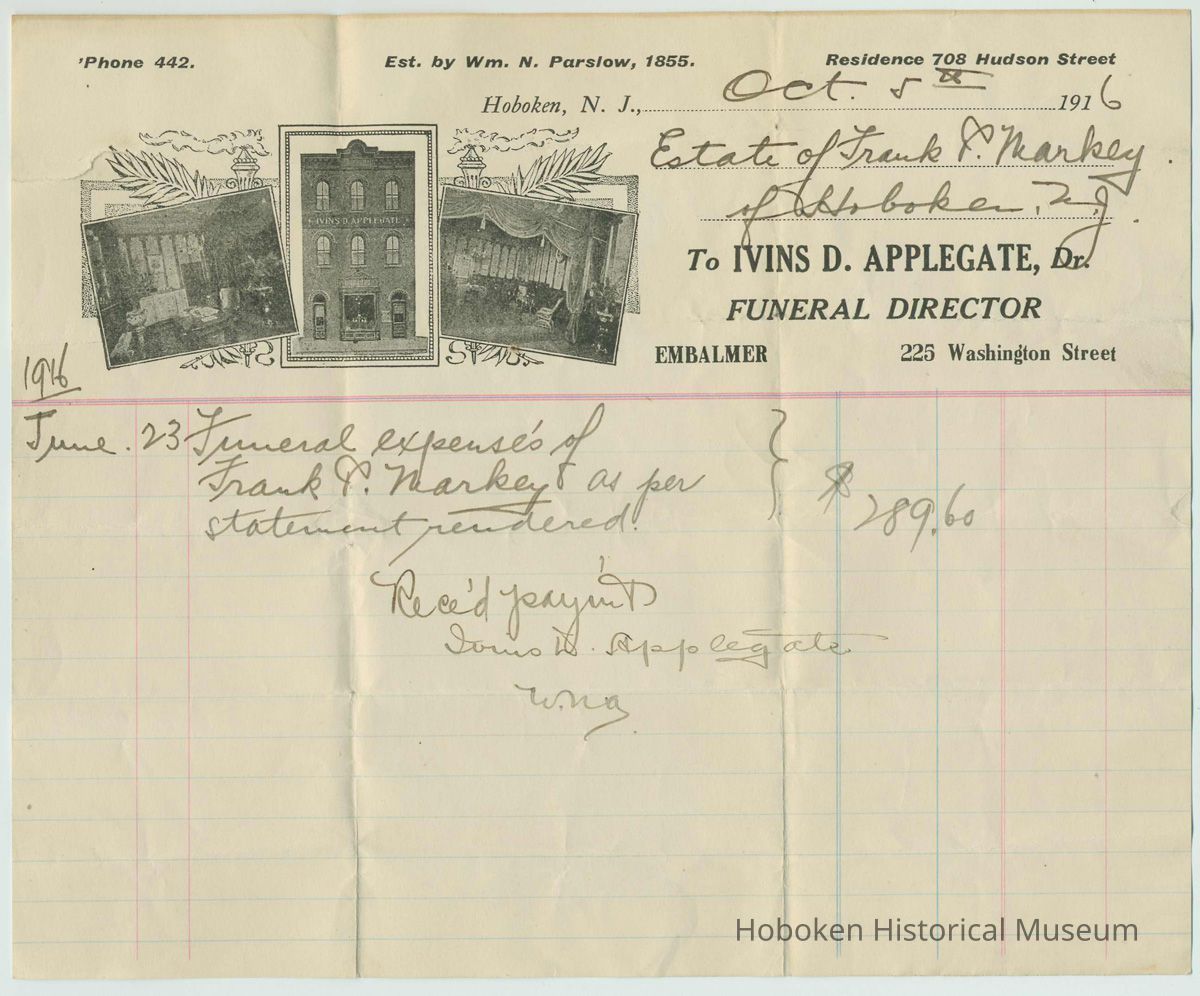 'Phone 442.
Est. by Wm. N. Parslow, 1855.
Residence 708 Hudson Street
Hoboken, N. J., Oct. 5th 1916
Estate of Frank P. Markey.
of Hoboken, N.J.
IVINS D. APPLEGATE
To IVINS D. APPLEGATE, Dr.
FUNERAL DIRECTOR
EMBALMER
225 Washington Street
1916
June. 23 Funeral expense's of
Frank P. Markey as per
statement rendered.
$ 289.60
Rece'd paym't
Ivins D. Applegate
Hoboken Historical Museum